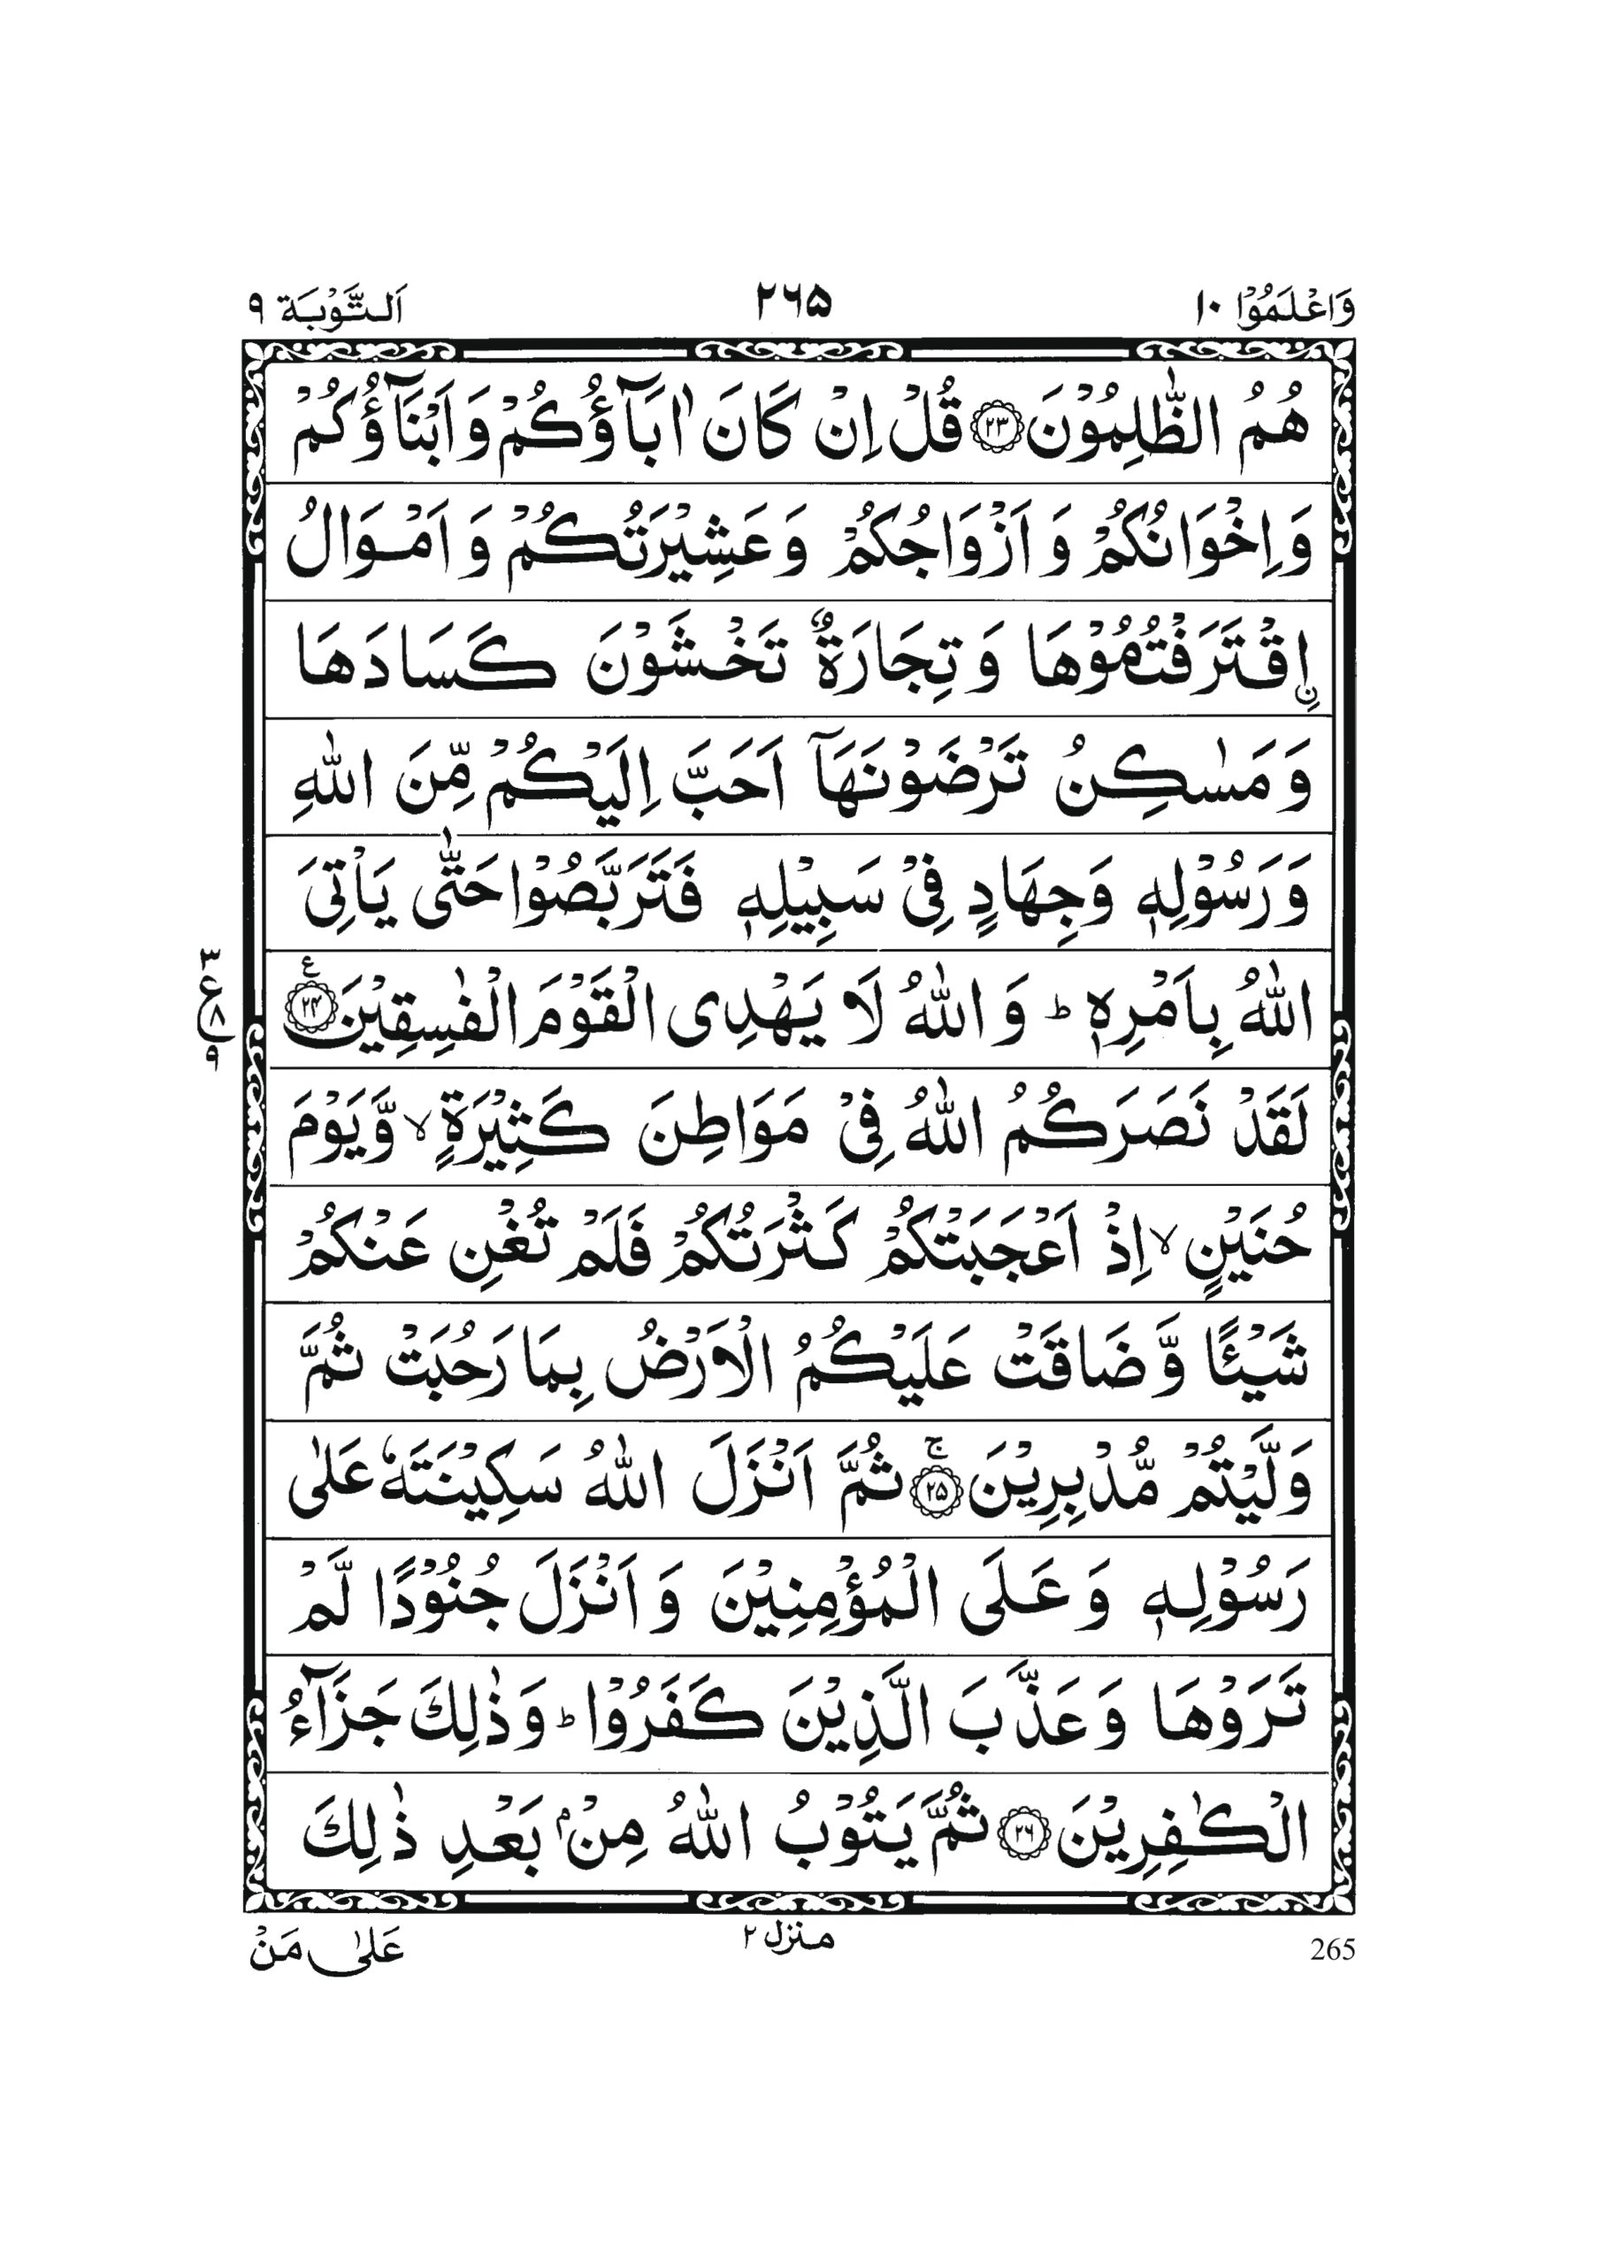 وَاعْلَمُوْۤا ١٠
٢٦٥
اَلتَّوْبَة ٩
هُمُ الظّٰلِمُوْنَ ﴿٢٣﴾ قُلْ اِنْ كَانَ اٰبَآؤُكُمْ وَ اَبْنَآؤُكُمْ
وَ اِخْوَانُكُمْ وَ اَزْوَاجُكُمْ وَ عَشِيْرَتُكُمْ وَ اَمْوَالُ
اۨقْتَرَفْتُمُوْهَا وَ تِجَارَةٌ تَخْشَوْنَ كَسَادَهَا
وَ مَسٰكِنُ تَرْضَوْنَهَآ اَحَبَّ اِلَيْكُمْ مِّنَ اللّٰهِ
وَ رَسُوْلِهٖ وَ جِهَادٍ فِيْ سَبِيْلِهٖ فَتَرَبَّصُوْا حَتّٰى يَاْتِيَ
اللّٰهُ بِاَمْرِهٖ ؕ وَ اللّٰهُ لَا يَهْدِى الْقَوْمَ الْفٰسِقِيْنَ ﴿٢٤﴾ ع
لَقَدْ نَصَرَكُمُ اللّٰهُ فِيْ مَوَاطِنَ كَثِيْرَةٍ ۙ وَّ يَوْمَ
حُنَيْنٍ ۙ اِذْ اَعْجَبَتْكُمْ كَثْرَتُكُمْ فَلَمْ تُغْنِ عَنْكُمْ
شَيْـًٔا وَّ ضَاقَتْ عَلَيْكُمُ الْاَرْضُ بِمَا رَحُبَتْ ثُمَّ
وَلَّيْتُمْ مُّدْبِرِيْنَ ﴿٢٥﴾ ۚ ثُمَّ اَنْزَلَ اللّٰهُ سَكِيْنَتَهٗ عَلٰى
رَسُوْلِهٖ وَ عَلَى الْمُؤْمِنِيْنَ وَ اَنْزَلَ جُنُوْدًا لَّمْ
تَرَوْهَا وَ عَذَّبَ الَّذِيْنَ كَفَرُوْا ؕ وَ ذٰلِكَ جَزَآءُ
الْكٰفِرِيْنَ ﴿٢٦﴾ ثُمَّ يَتُوْبُ اللّٰهُ مِنْۢ بَعْدِ ذٰلِكَ
٣
ع ٨
٩
265
منزل ٢
عَلٰى مَنْ